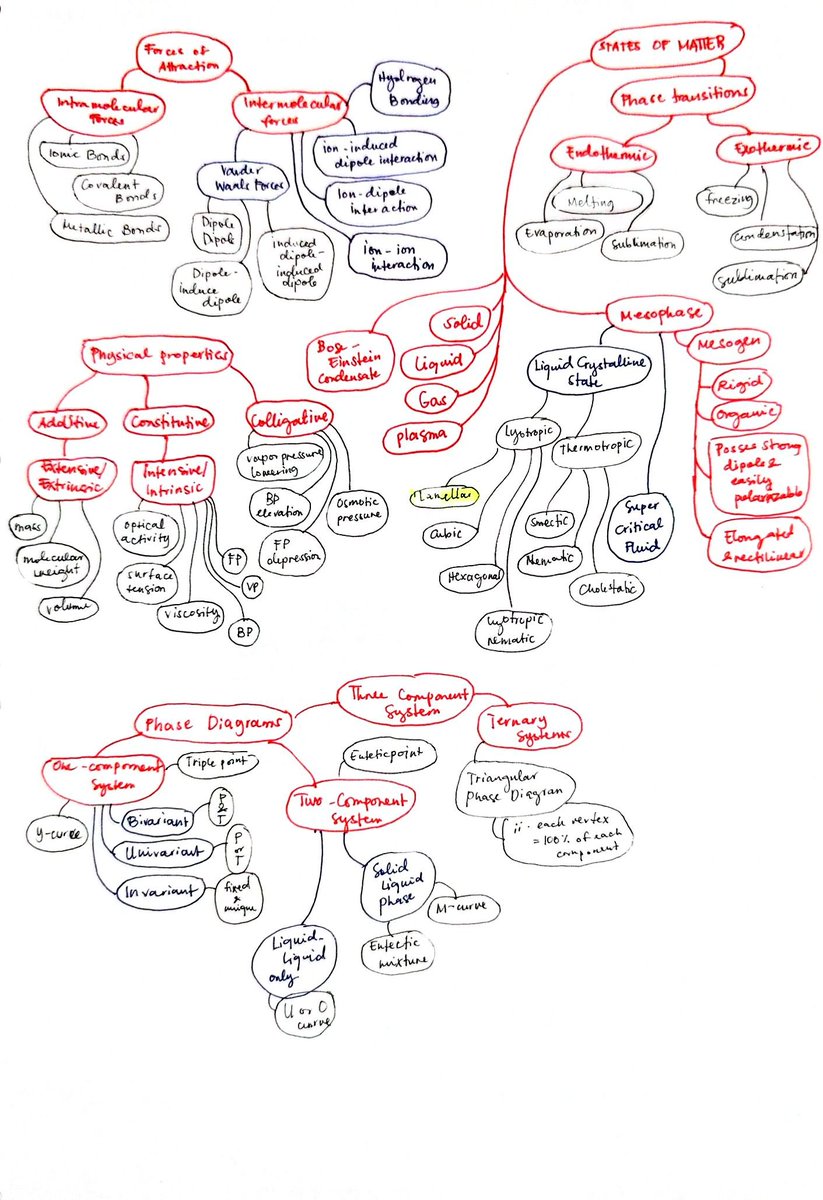 Forces of
Attraction
Intramolecular
Forces
Ionic Bonds
Covalent
Bonds
Metallic Bonds
Intermolecular
forces
Vander
Waals Forces
Dipole
Dipole
Dipole-
induce
dipole
induced
dipole-
induced
dipole
Hydrogen
Bonding
ion-induced
dipole interaction
Ion-dipole
interaction
ion-ion
interaction
STATES OF MATTER
Phase transitions
Endothermic
Melting
Evaporation
Sublimation
Exothermic
freezing
condenstation
sublimation
Bose-
Einstein
Condensate
Solid
Liquid
Gas
plasma
Mesophase
Liquid Crystalline
State
Lyotropic
Lamellar
Cubic
Hexagonal
Lyotropic
nematic
Thermotropic
Smectic
Nematic
Cholestatic
Super
Critical
Fluid
Mesogen
Rigid
Organic
Posses strong
dipole &
easily
polarizable
Elongated
& rectilinear
Physical properties
Additive
Extensive/
Extrinsic
mass
molecular
weight
volume
Constitutive
Intensive/
Intrinsic
optical
activity
surface
tension
viscosity
FP
VP
BP
Colligative
vapor pressure
lowering
BP
elevation
FP
depression
Osmotic
pressure
Phase Diagrams
Three Component
System
Ternary
Systems
Triangular
Phase Diagram
each vertex
= 100% of each
component
One-component
System
Triple point
Y-curve
Bivariant
P
&
T
Univariant
P
or
T
Invariant
fixed
&
unique
Two-Component
System
Euteticpoint
Solid
Liquid
phase
M-curve
Eutectic
mixture
Liquid-
Liquid
only
U or O
curve